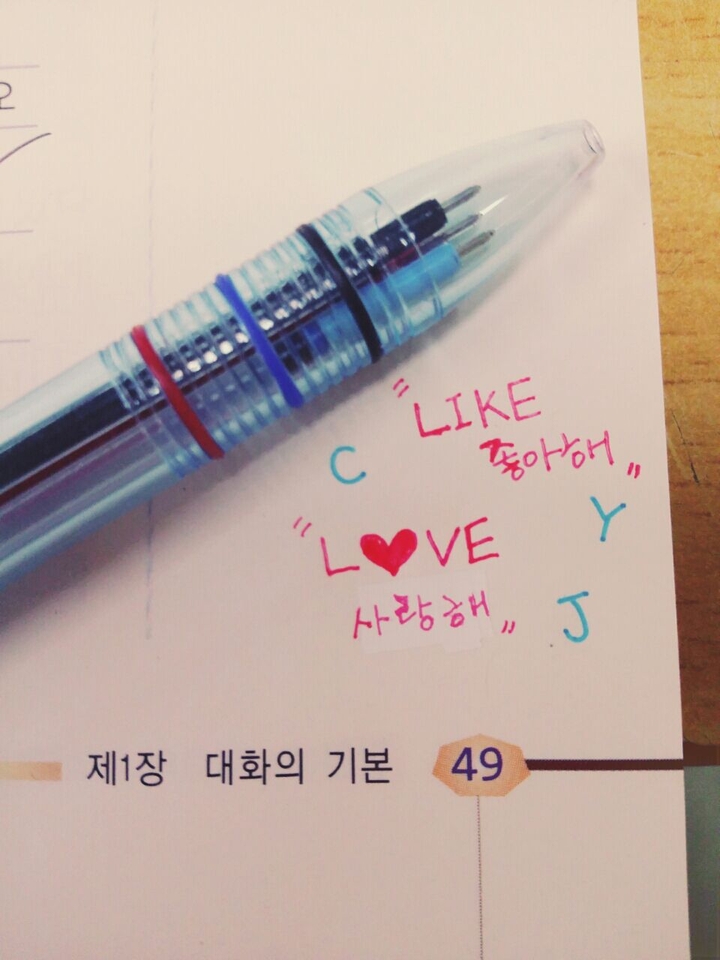 오
"LIKE
좋아해"
C
Y
"L♥VE
사랑해"
J
제1장 대화의 기본 49